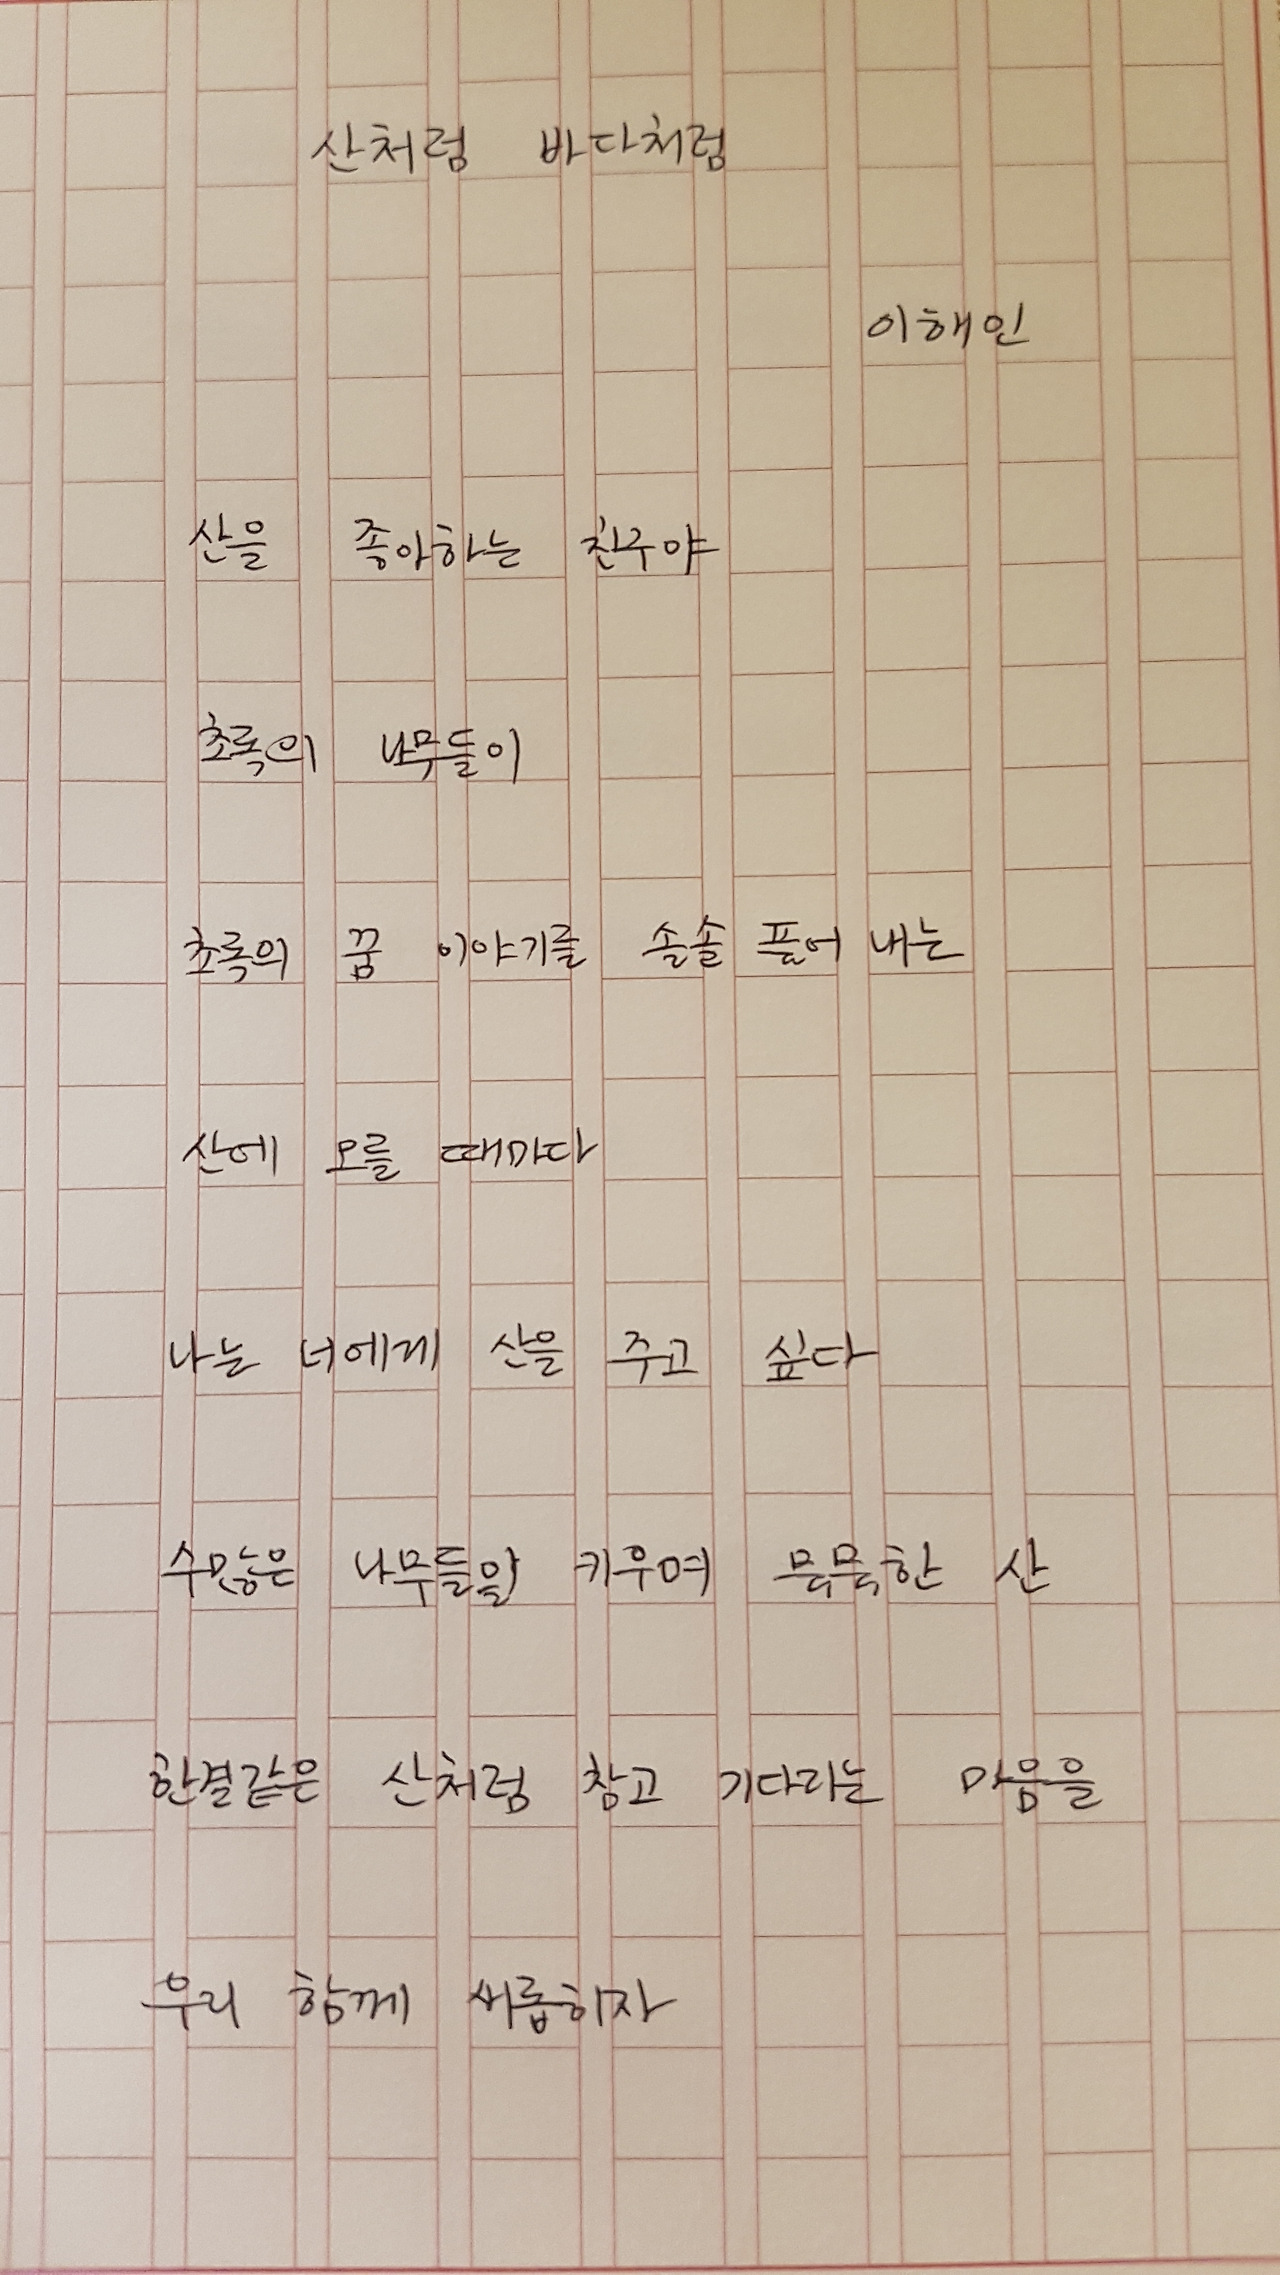 산처럼 바다처럼
이해인
산을 좋아하는 친구야
초록의 나무들이
초록의 꿈 이야기를 솔솔 풀어 내는
산에 오를 때마다
나는 너에게 산을 주고 싶다
수많은 나무들을 키우며 묵묵한 산
한결같은 산처럼 참고 기다리는 마음을
우리 함께 새롭히자